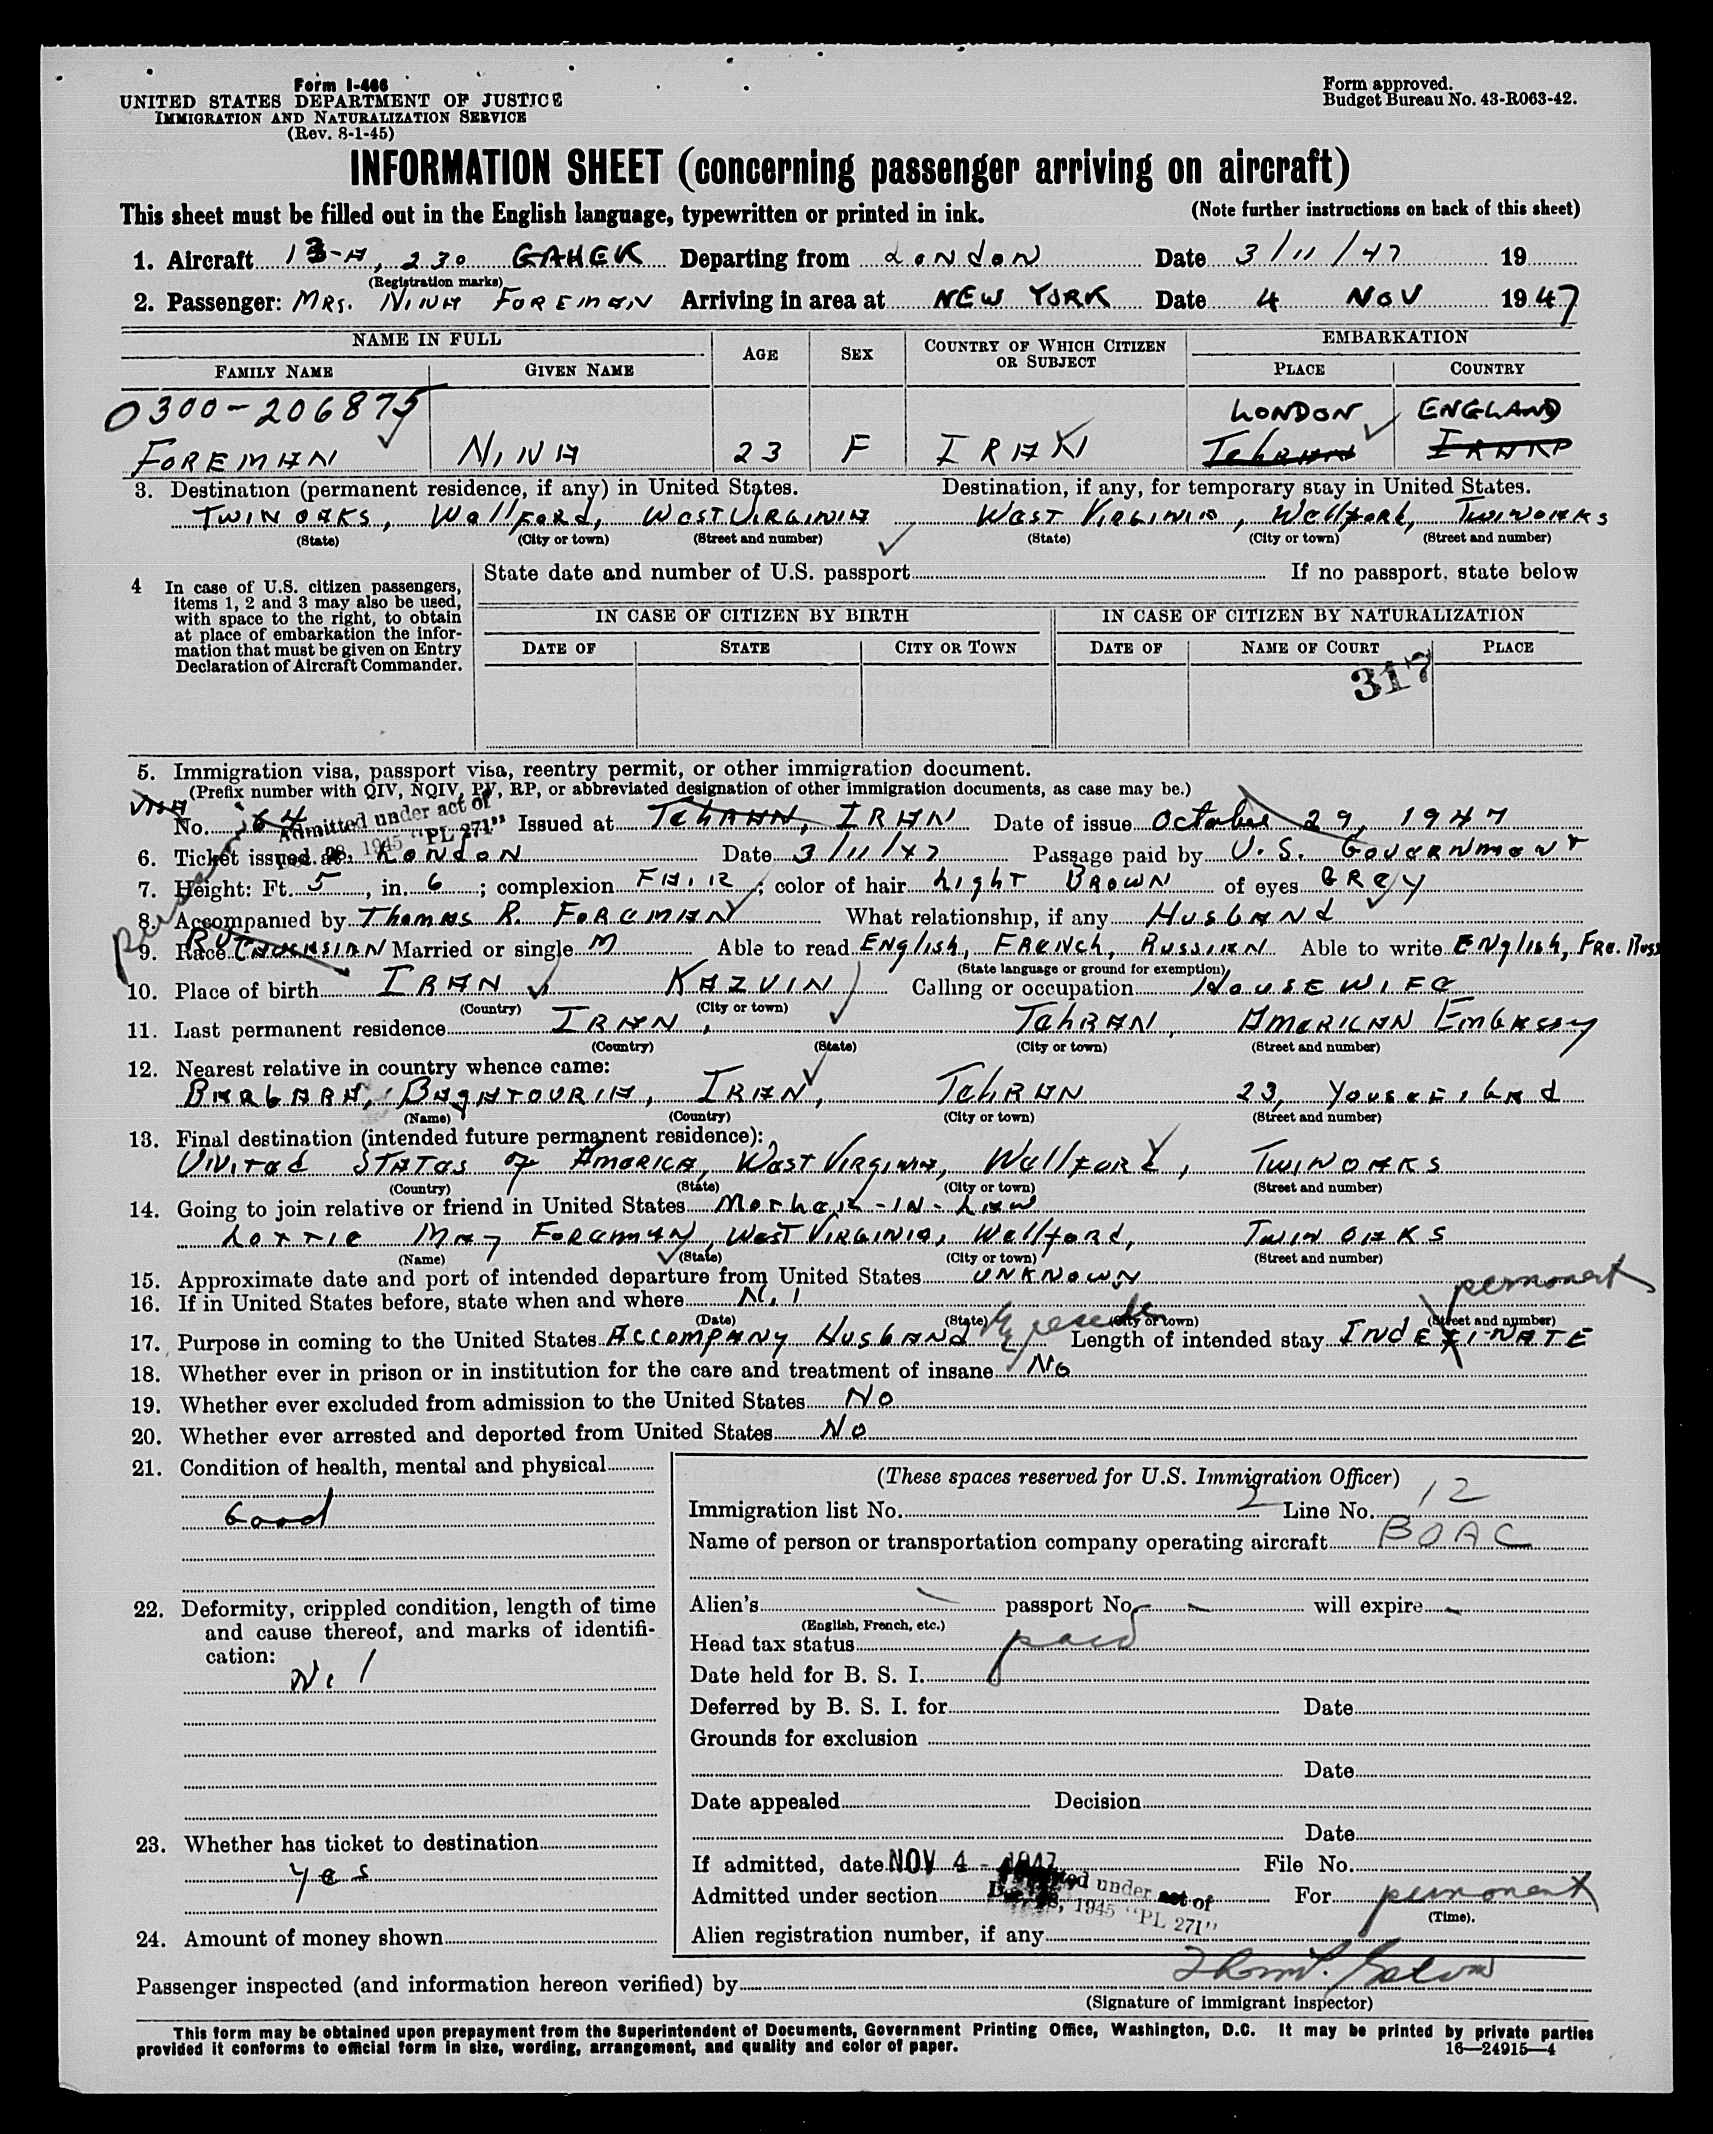 Form I-466
UNITED STATES DEPARTMENT OF JUSTICE
IMMIGRATION AND NATURALIZATION SERVICE
(Rev. 8-1-45)
Form approved.
Budget Bureau No. 43-R063-42.
INFORMATION SHEET (concerning passenger arriving on aircraft)
This sheet must be filled out in the English language, typewritten or printed in ink.
(Note further instructions on back of this sheet)
1. Aircraft 13-A, 230 GAHEK Departing from London Date 3/11/47 19
(Registration marks)
2. Passenger: MRS. NINA FOREMAN Arriving in area at NEW YORK Date 4 NOV 1947
NAME IN FULL AGE SEX COUNTRY OF WHICH CITIZEN OR SUBJECT EMBARKATION
FAMILY NAME GIVEN NAME PLACE COUNTRY
0300-206875 LONDON ENGLAND
FOREMAN NINA 23 F IRAN TehRAN
3. Destination (permanent residence, if any) in United States. Destination, if any, for temporary stay in United States.
TWINOAKS, Wallford, WEST VIRGINIA WEST VIRGINIA, Wellford, TWINOAKS
(State) (City or town) (Street and number) (State) (City or town) (Street and number)
4 In case of U.S. citizen passengers, items 1, 2 and 3 may also be used, with space to the right, to obtain at place of embarkation the information that must be given on Entry Declaration of Aircraft Commander.
State date and number of U.S. passport If no passport, state below
IN CASE OF CITIZEN BY BIRTH IN CASE OF CITIZEN BY NATURALIZATION
DATE OF STATE CITY OR TOWN DATE OF NAME OF COURT PLACE
317
5. Immigration visa, passport visa, reentry permit, or other immigration document.
(Prefix number with QIV, NQIV, PV, RP, or abbreviated designation of other immigration documents, as case may be.)
VISA
No. 64 Issued at TehRAN, IRAN Date of issue October 29, 1947
Admitted under act of
Dec. 28, 1945 "PL 271"
6. Ticket issued at London Date 3/11/47 Passage paid by U.S. GOVERNMENT
7. Height: Ft. 5, in. 6; complexion FAIR; color of hair Light BROWN of eyes GREY
8. Accompanied by Thomas R. FOREMAN What relationship, if any HUSBAND
9. Race CAUCASIAN Married or single M Able to read ENglish, FRENch, RUSSIAN Able to write ENglish, FRE. RUSS
(State language or ground for exemption)
10. Place of birth IRAN KAZVIN Calling or occupation HOUSEWIFE
(Country) (City or town)
11. Last permanent residence IRAN, TehRAN, AMERICAN EmbAssy
(Country) (State) (City or town) (Street and number)
12. Nearest relative in country whence came:
BARBARA, BAGATOURIA, IRAN, TehRAN 23, YOUSEFIbAd
(Name) (Country) (City or town) (Street and number)
13. Final destination (intended future permanent residence):
UNITEd STATES of AMERICA, WEST VIRGINIA, Wellford, TWINOAKS
(Country) (State) (City or town) (Street and number)
14. Going to join relative or friend in United States Mother-IN-LAW
LOTTIE MAY FOREMAN, WEST VIRGINIA, Wellford, TWIN OAKS
(Name) (State) (City or town) (Street and number)
15. Approximate date and port of intended departure from United States UNKNOWN
permanent
16. If in United States before, state when and where Nil
(Date) (State) (City or town) (Street and number)
17. Purpose in coming to the United States ACCOMPANY HUSBAND To reside Length of intended stay INdEFINATE
18. Whether ever in prison or in institution for the care and treatment of insane No
19. Whether ever excluded from admission to the United States No
20. Whether ever arrested and deported from United States No
21. Condition of health, mental and physical
Good
22. Deformity, crippled condition, length of time and cause thereof, and marks of identification:
Nil
23. Whether has ticket to destination
yes
24. Amount of money shown
(These spaces reserved for U.S. Immigration Officer)
Immigration list No. 2 Line No. 12
Name of person or transportation company operating aircraft BOAC
Alien's passport No. - will expire -
(English, French, etc.)
Head tax status paid
Date held for B. S. I.
Deferred by B. S. I. for Date
Grounds for exclusion
Date
Date appealed Decision
Date
If admitted, date NOV 4 - 1947 File No.
Admitted under section Admitted under act of For permanent
Dec. 28, 1945 "PL 271"
(Time).
Alien registration number, if any
Passenger inspected (and information hereon verified) by
(Signature of immigrant inspector)
This form may be obtained upon prepayment from the Superintendent of Documents, Government Printing Office, Washington, D.C. It may be printed by private parties
provided it conforms to official form in size, wording, arrangement, and quality and color of paper.
16—24915—4